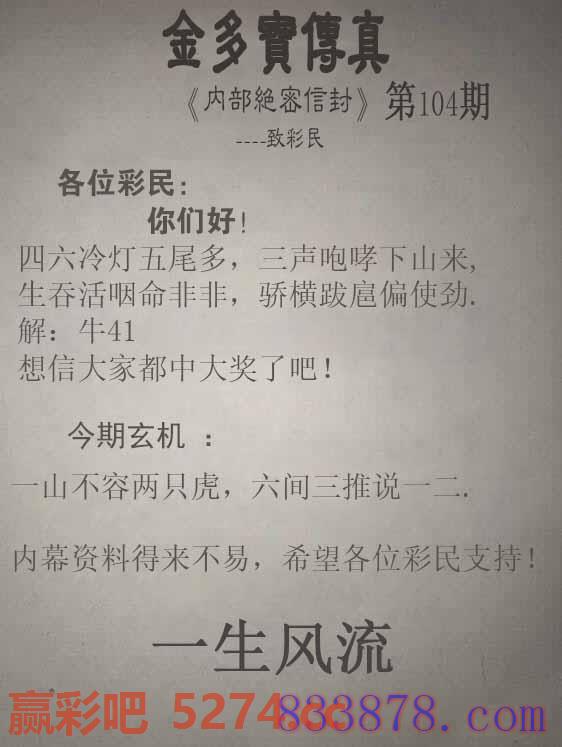 金多寳傳真
《内部絶密信封》第104期
----致彩民
各位彩民:
你们好!
四六冷灯五尾多，三声咆哮下山来,
生吞活咽命非非，骄横跋扈偏使劲.
解：牛41
想信大家都中大奖了吧！
今期玄机 ：
一山不容两只虎，六间三推说一二.
内幕资料得来不易，希望各位彩民支持！
一生风流
赢彩吧 5274.cc
833878.com